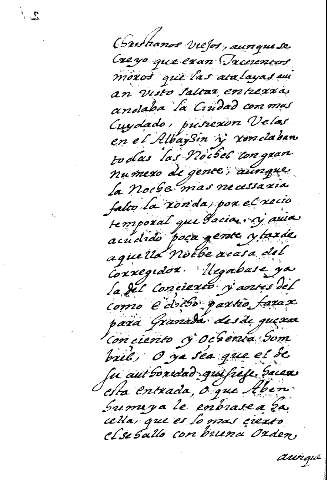 2
Christianos viejos, aunque se
Creyo que eran Trecientos
moros que las atalayas avi
an visto saltar, en tierra
andaba la Ciudad con mas
Cuydado, pusieron Velas
en el Albaysin y rondaban
todas las Noches con gran
Numero de gente, aunque
la Noche mas necessaria
falto la ronda, por el recio
temporal que hacia, y avia
acudido poca gente y tarde
aquella Noche a casa del
Corregidor. llegabase ya
la del Concierto y antes del
como e dicho partio farax
para Granada desde guejar
con ciento y ochenta hom
bres, O ya sea que el de
su authoridad quisiese hacer
esta entrada, O que Aben
humeya le enbiase a ha
cella, que es lo mas cierto
el se hallo con buena Orden,
aunque